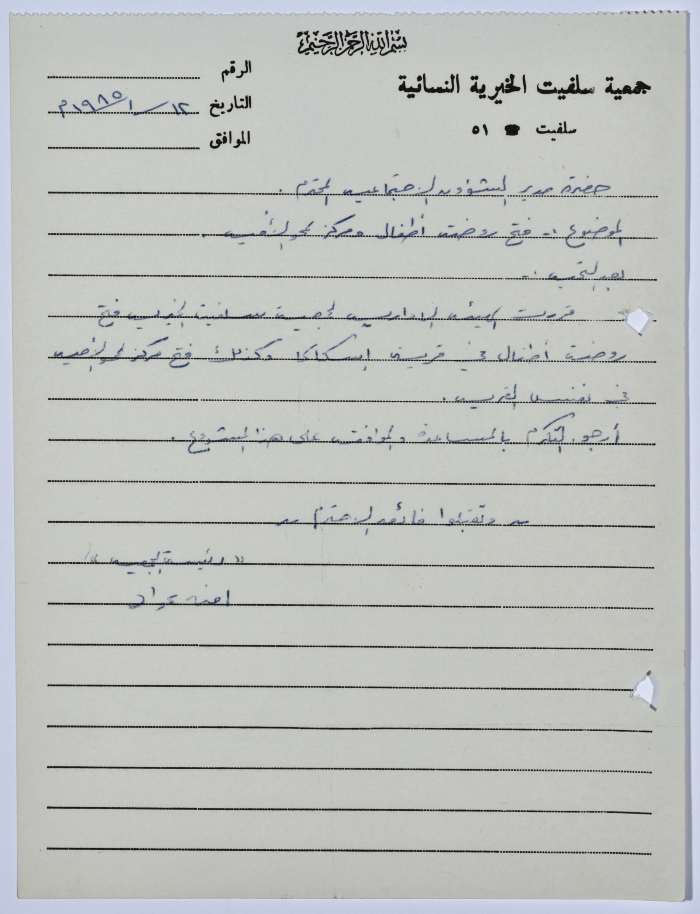 بسم الله الرحمن الرحيم
جمعية سلفيت الخيرية النسائية
سلفيت ☎ ٥١
الرقم
التاريخ ١٢/١/١٩٨٥م
الموافق
حضرة مدير الشؤون الاجتماعية المحترم .
الموضوع :- فتح روضة أطفال ومركز محو الأمية .
بعد التحية :-
قررت الهيئة الادارية لجمعية سلفيت الخيرية فتح
روضة أطفال في قرية اسكاكا وكذلك فتح مركز محو الأمية
في نفس القرية .
أرجو التكرم بالمساعدة والموافقة على هذا المشروع .
وتقبلوا فائق الاحترام
" رئيسة الجمعية "
امنة